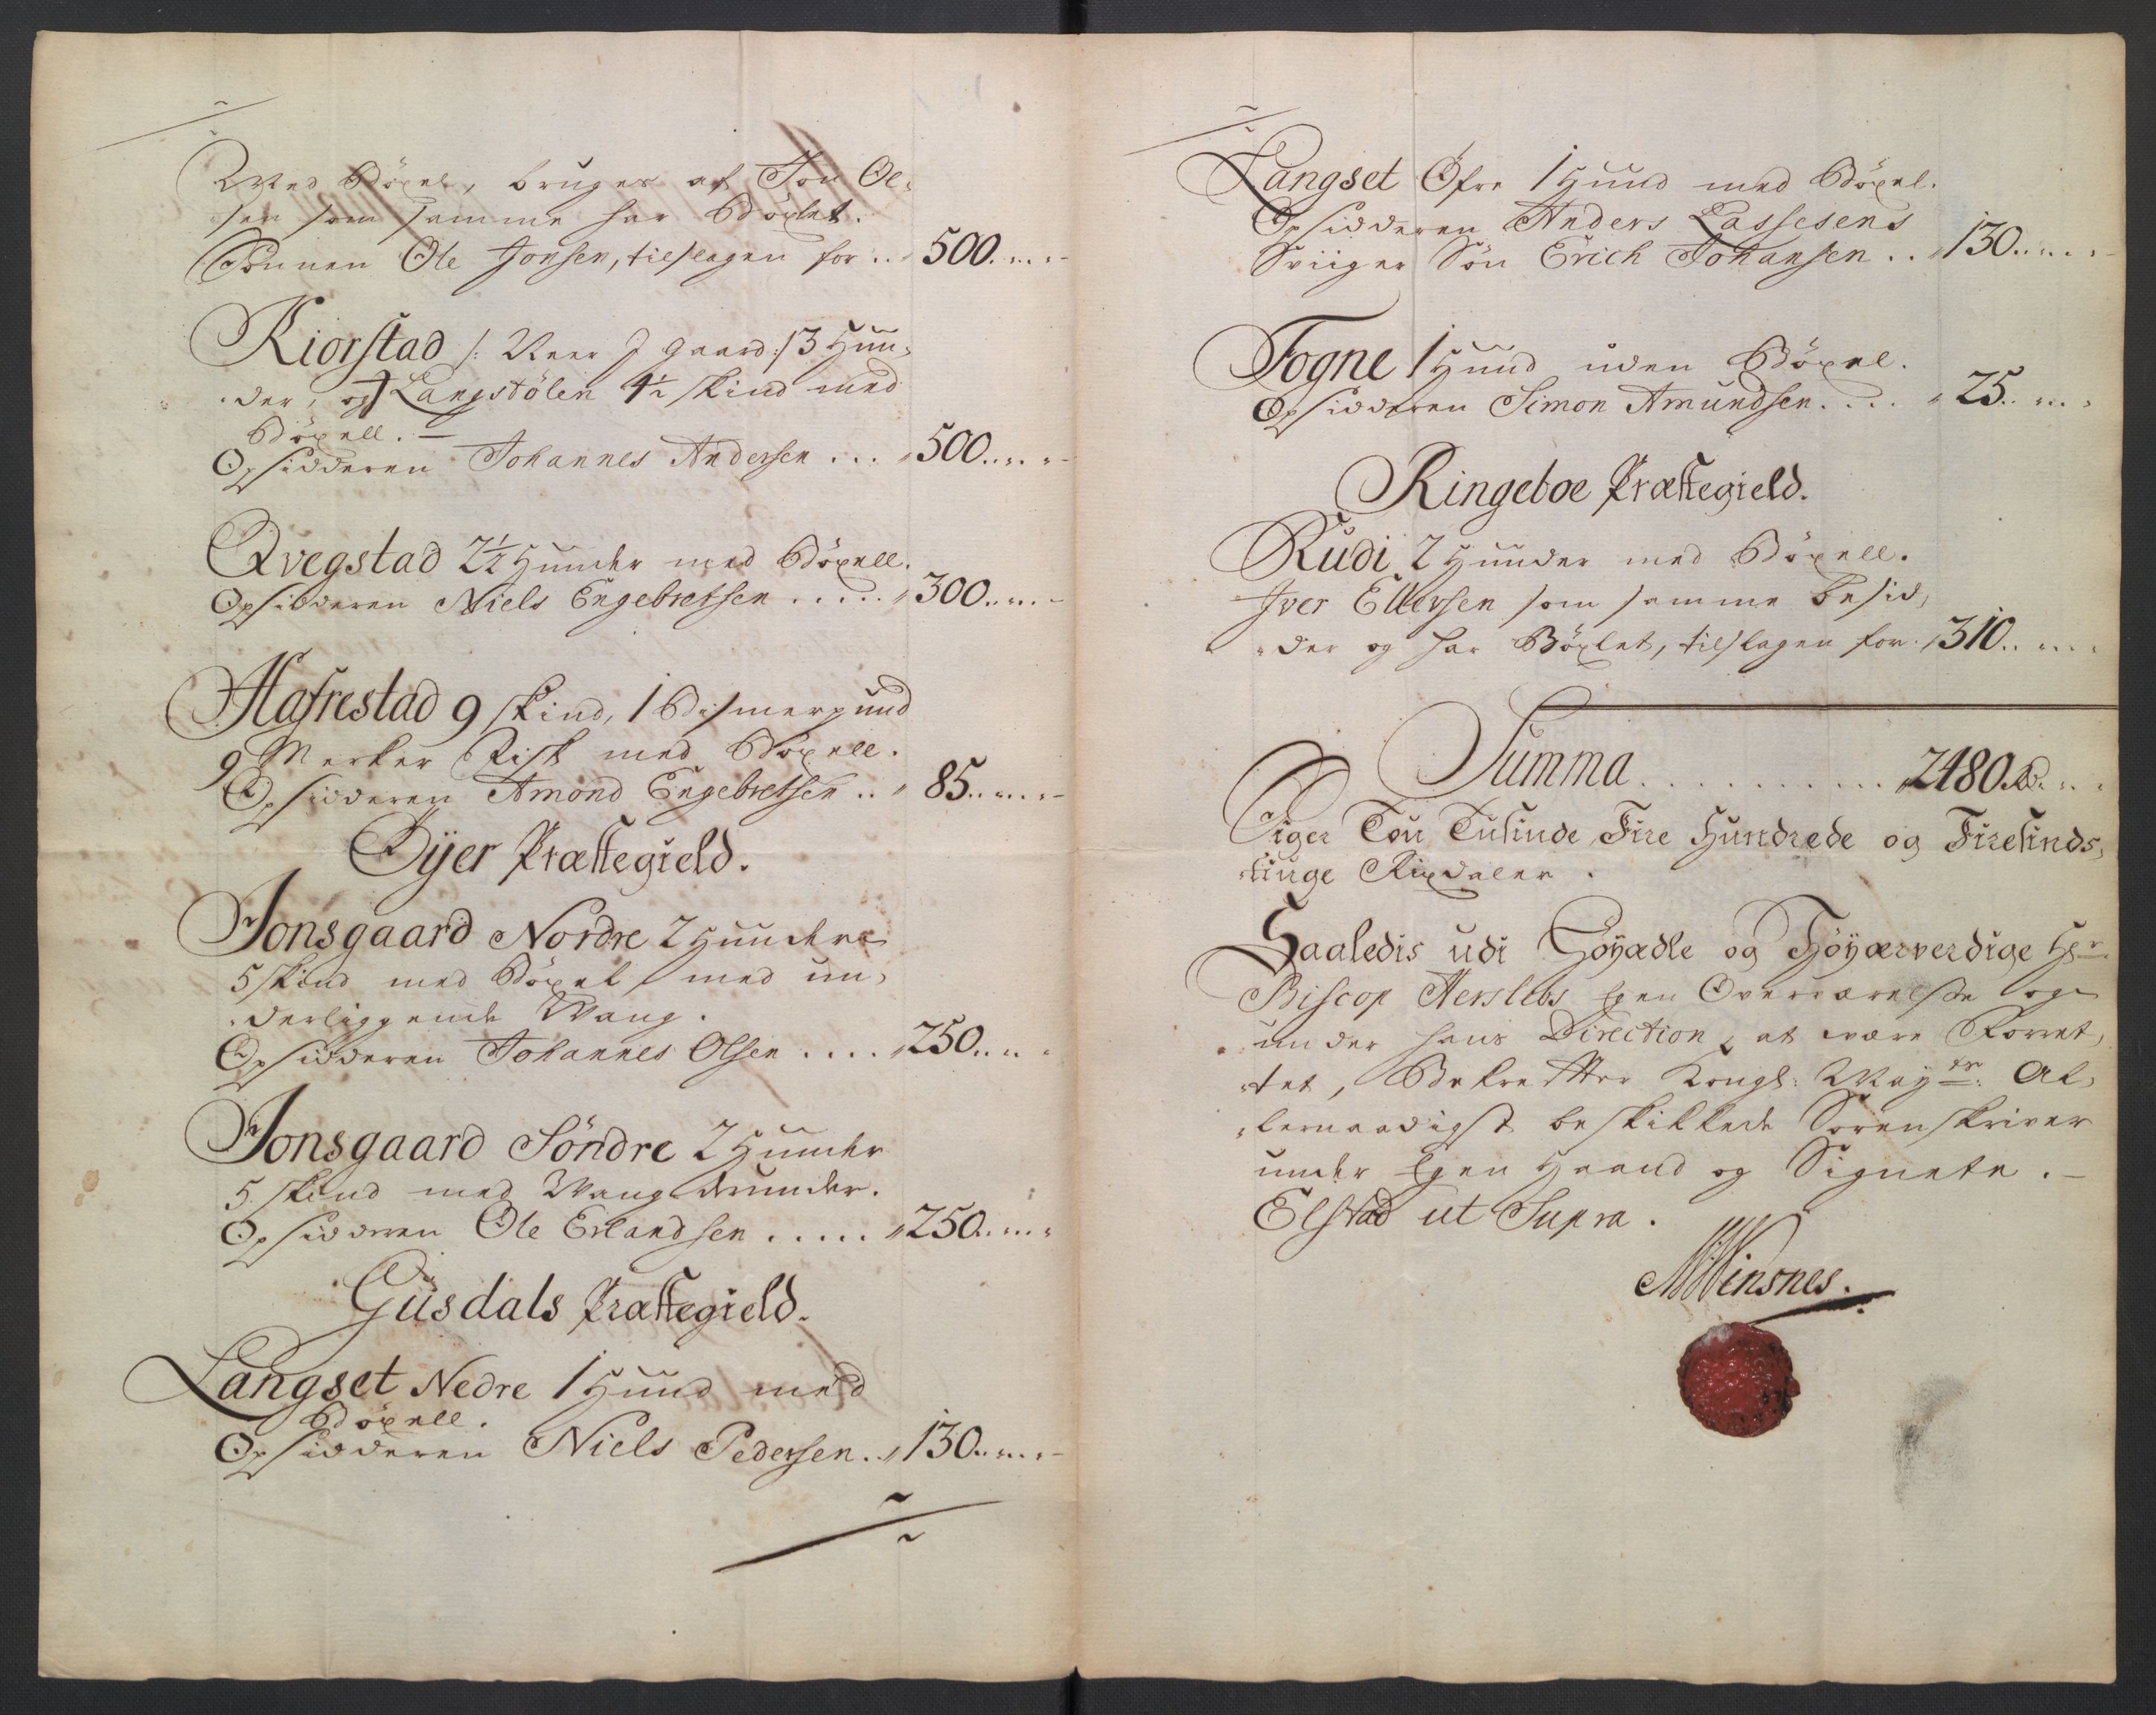 Med Böxel, bruges af Jon Ol-
sen som samme har Böxlet.
Sönnen Ole Jonsen, tilslagen for .. 500.
Kiorstad /: Veer J gaard :/ 3 Hun-
der, og Langstölen 4½ skind med
Böxell. —
Opsidderen Johannes Andersen ... 500.
Qvegstad 2½ Hunder med Böxell.
Opsidderen Niels Engebretsen ..... 300.
Hafrestad 9 skind, 1 Bismerpund
9 Merker Fisk med Böxell.
Opsidderen Amond Engebretsen .. 85.
Öÿer Præstegield.
Jonsgaard Nordre 2 Hunder
5 skind med Böxel med un-
derliggende Wang.
Opsidderen Johannes Olsen .... 250.
Jonsgaard Söndre 2 Hunder
5 skind med Wang derunder.
Opsidderen Ole Erlandsen ..... 250.
Gusdals Præstegield.
Langset Nedre 1 Hund med
Böxell.
Opsidderen Niels Pedersen .. 130.
Langset Öfre 1 Hund med Böxel.
Opsidderen Anders Lassesens
Sviiger Sön Erich Johansen .. 130.
Fogne 1 Hund uden Böxel.
Opsidderen Simon Amundsen .... 25.
Ringeboe Præstegield.
Rudi 2 Hunder med Böxell.
Iver Ellevsen som samme besid-
der og har Böxlet, tilslagen for 310.
Summa ........... 2480 Rd.
Siger Tou Tusinde Fire Hundrede og Firesinds-
tiuge Rixdaler.
Saaledis udi Höyædle og Höyærverdige Hr.
Biscop Herslebs Egen Overværelse og
under hans Direction, at være Forret-
tet, Bekrefter Kongl: Mayts: Al-
lernaadigst beskikkede Sorenskriver
under Egen Haand og Signete. —
Elstad ut Supra.
MWinsnes.